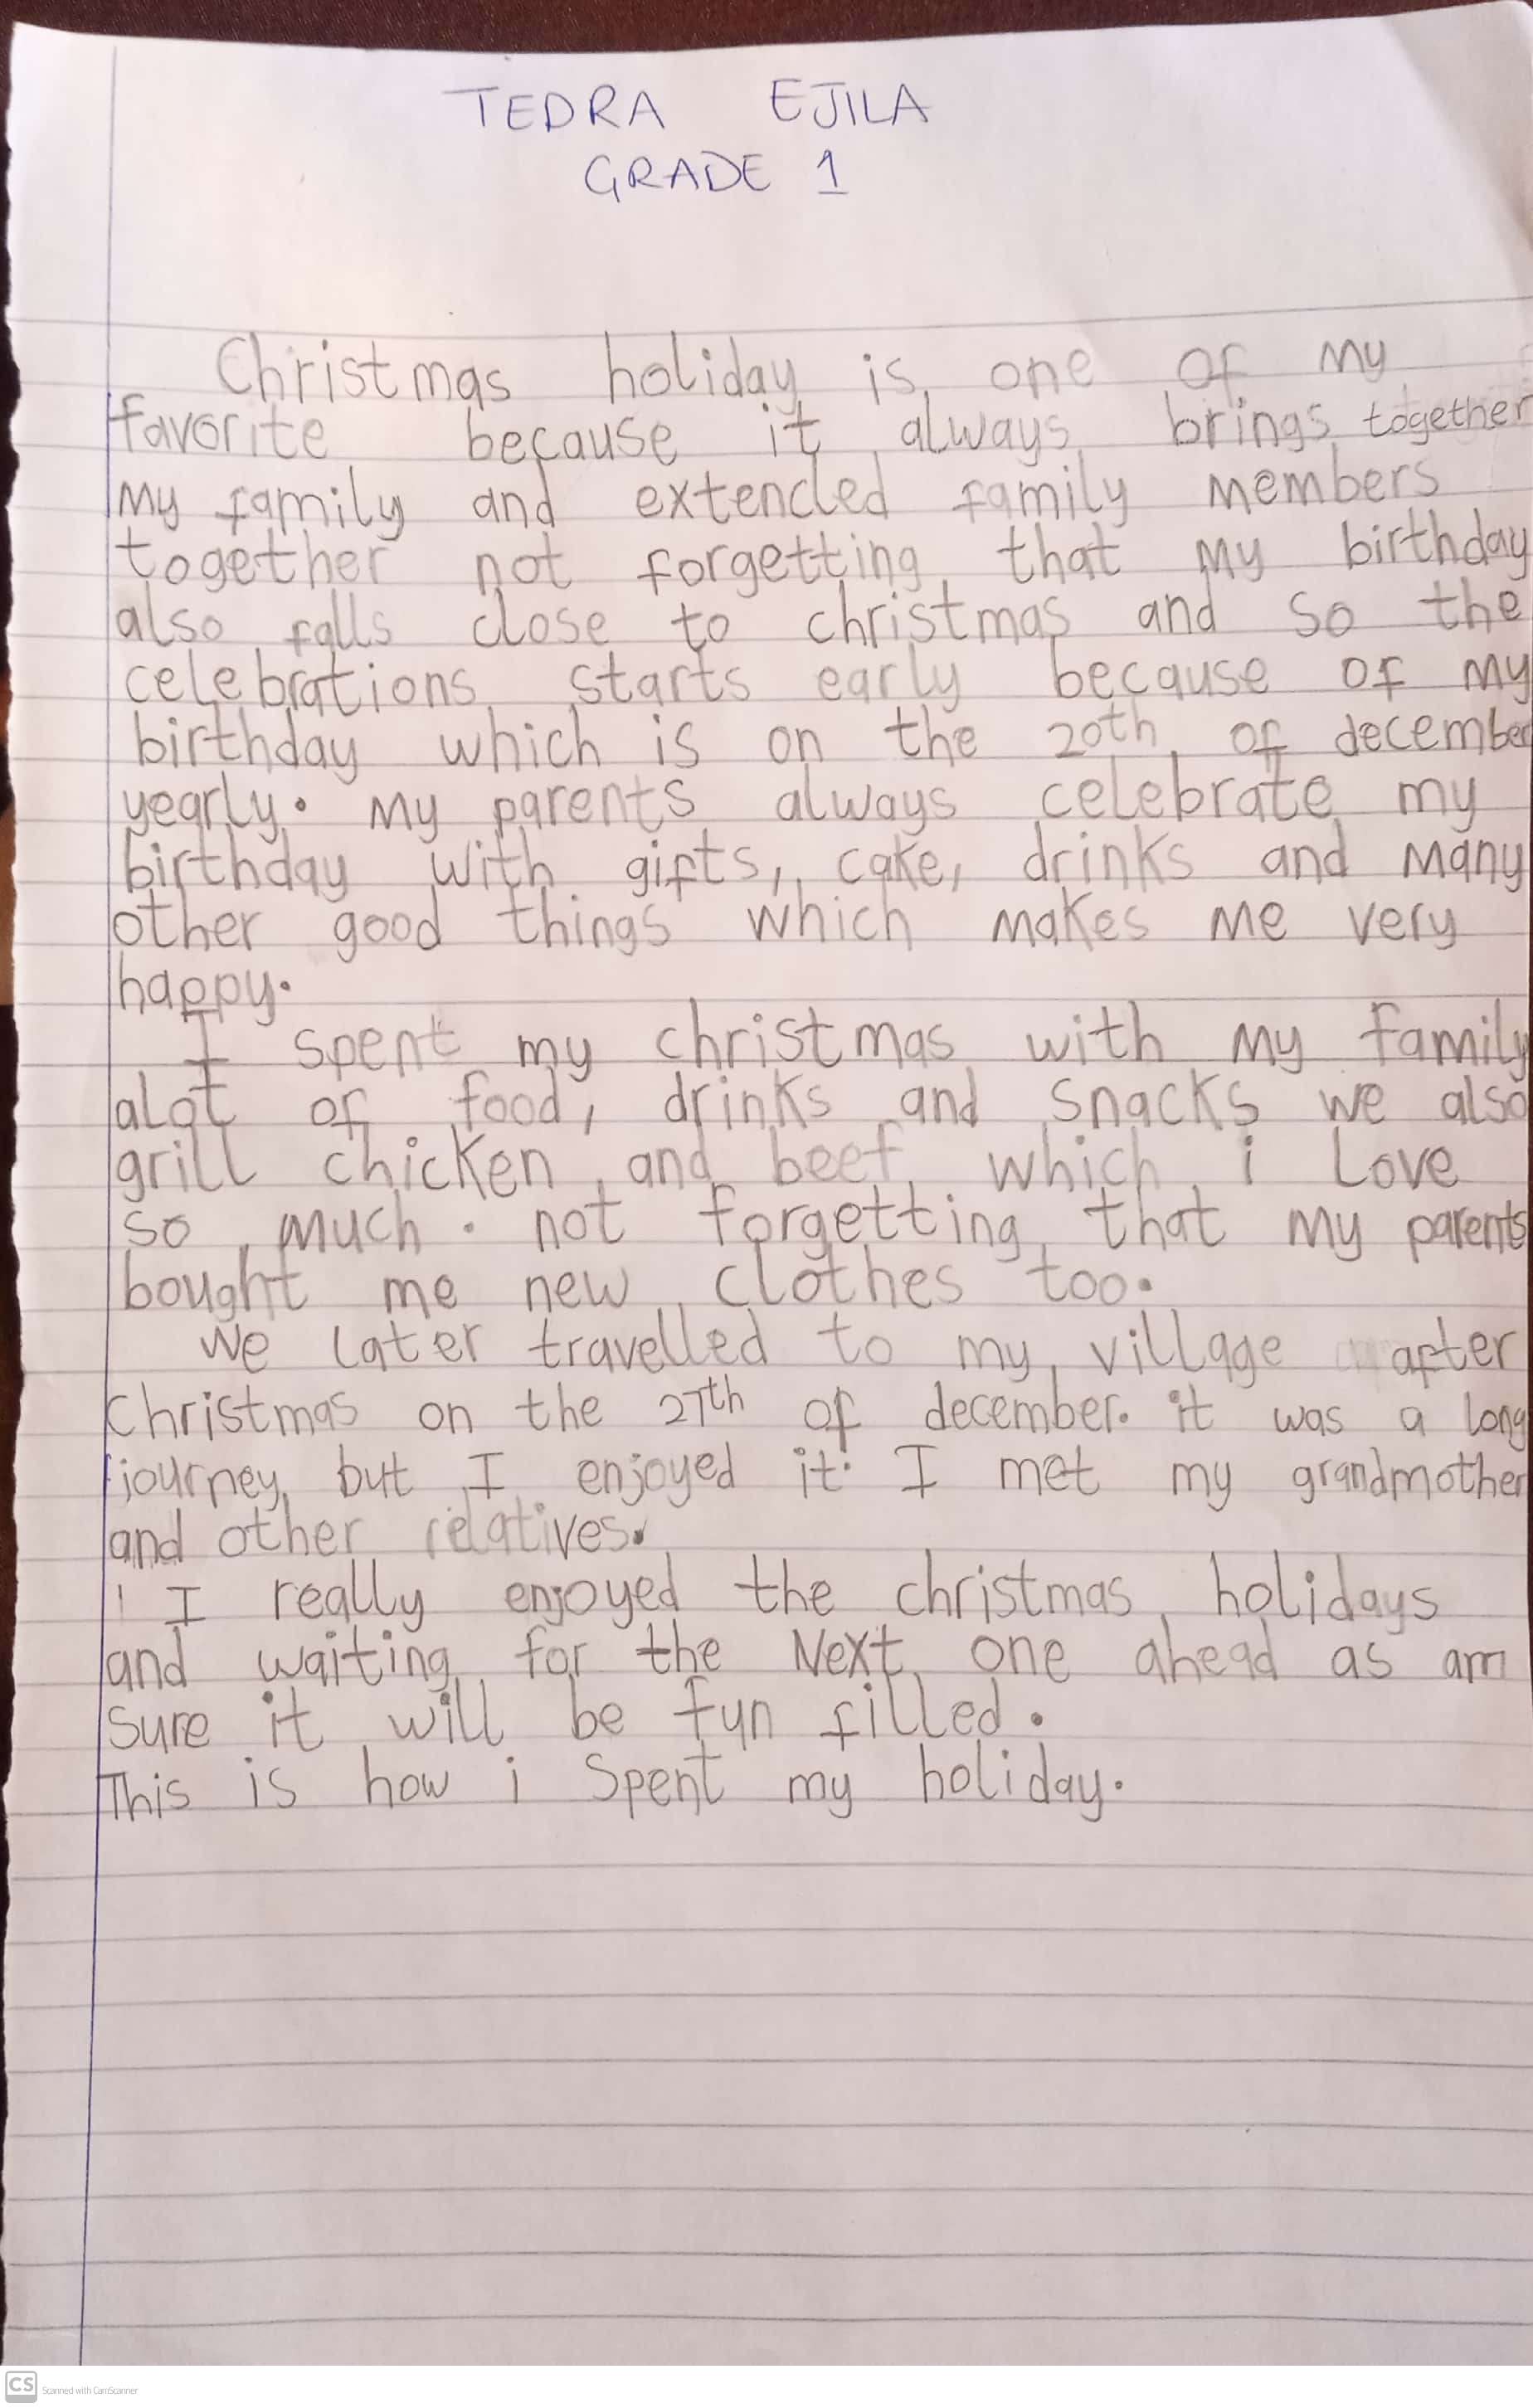 TEDRA EJILA
GRADE 1
Christmas holiday is one of my
favorite because it always brings together
my family and extended family members
together not forgetting that my birthday
also falls close to christmas and so the
celebrations starts early because of my
birthday which is on the 20th of december
yearly. My parents always celebrate my
birthday with gifts, cake, drinks and many
other good things which makes me very
happy.
I spent my christmas with my family
alot of food, drinks and snacks we also
grill chicken and beef which i Love
so much. not forgetting that my parents
bought me new clothes too.
We later travelled to my village after
Christmas on the 27th of december. it was a long
journey but I enjoyed it. I met my grandmother
and other relatives.
I really enjoyed the christmas holidays
and waiting for the Next one ahead as am
sure it will be fun filled.
This is how i spent my holiday.
CS Scanned with CamScanner